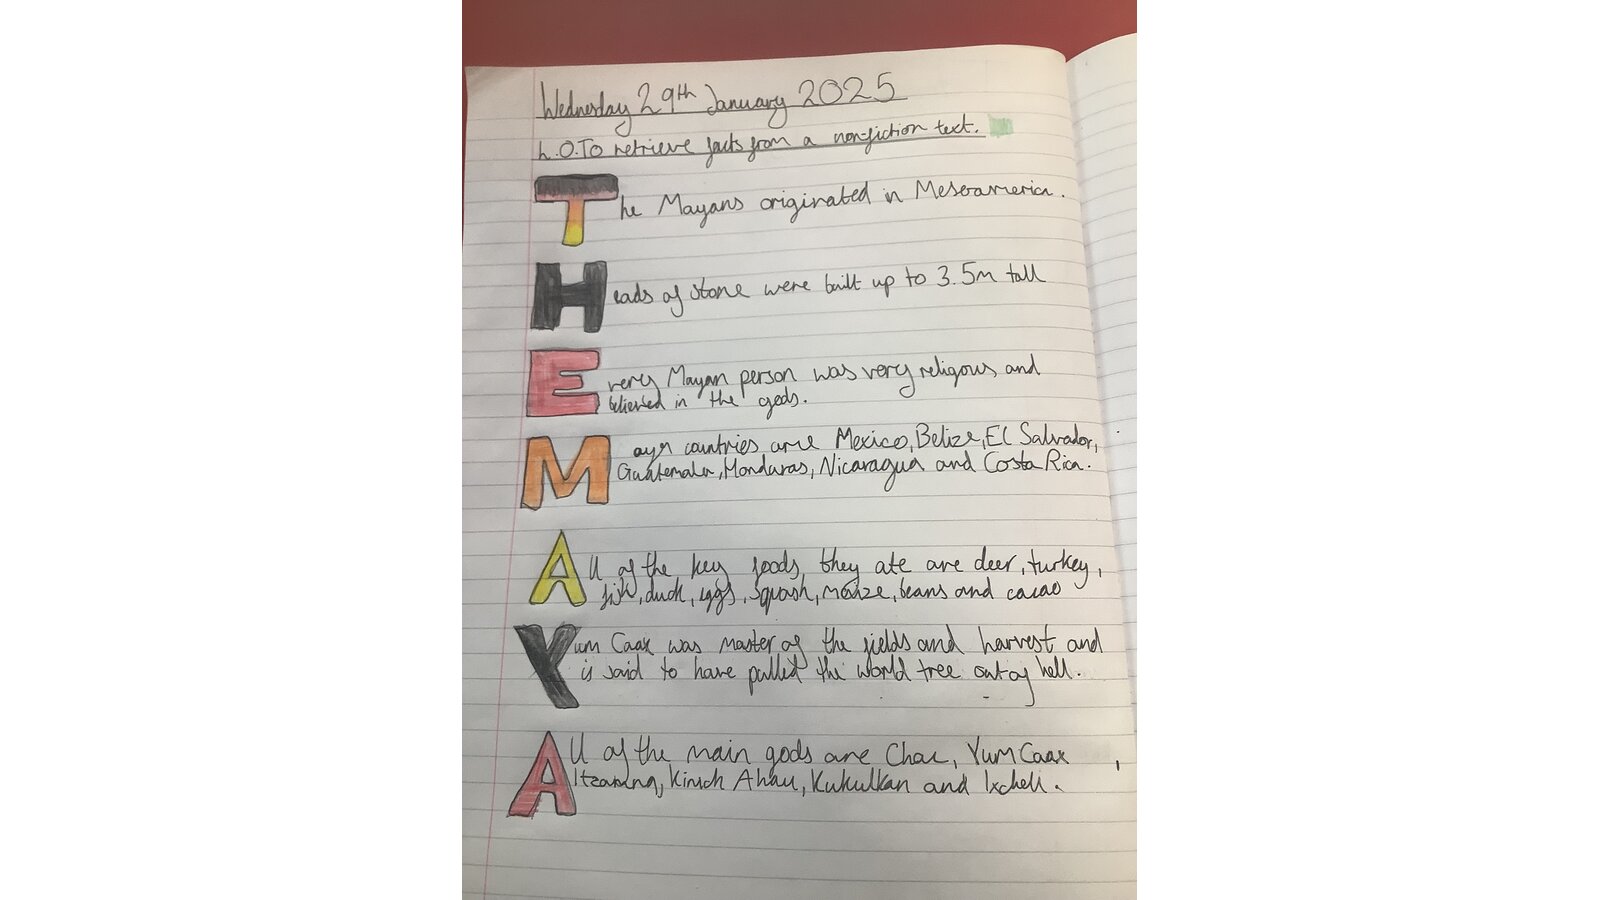 Wednesday 29th January 2025
L.O.To retrieve facts from a non-fiction text.
The Mayans originated in Mesoamerica.
Heads of stone were built up to 3.5m tall
Every Mayan person was very religous and
believed in the gods.
Mayan countries are Mexico, Belize, El Salvador,
Guatemala, Honduras, Nicaragua and Costa Rica.
All of the key foods they ate are deer, turkey,
fish, duck, eggs, squash, maize, beans and cacao
Yum Caax was master of the fields and harvest and
is said to have pulled the world tree out of hell.
All of the main gods are Chac, Yum Caax,
Itzamna, Kinich Ahau, Kukulkan and Ixchell.